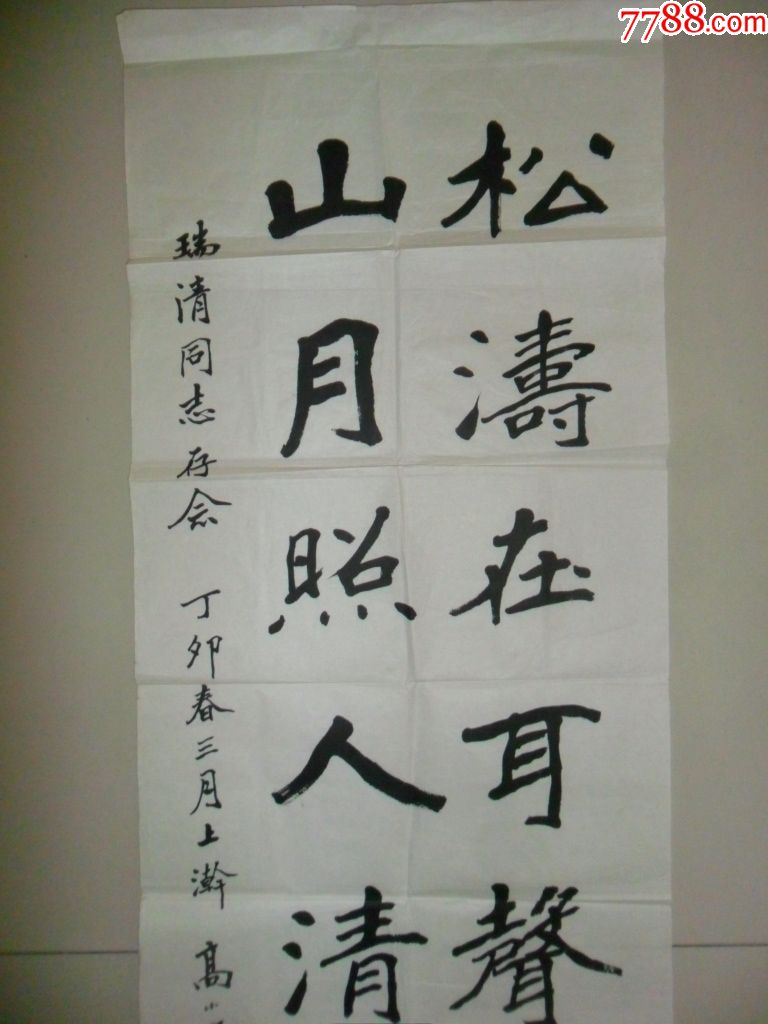 7788.com
松濤在耳聲
山月照人清
瑞清同志存念 丁卯春三月上澣 高小